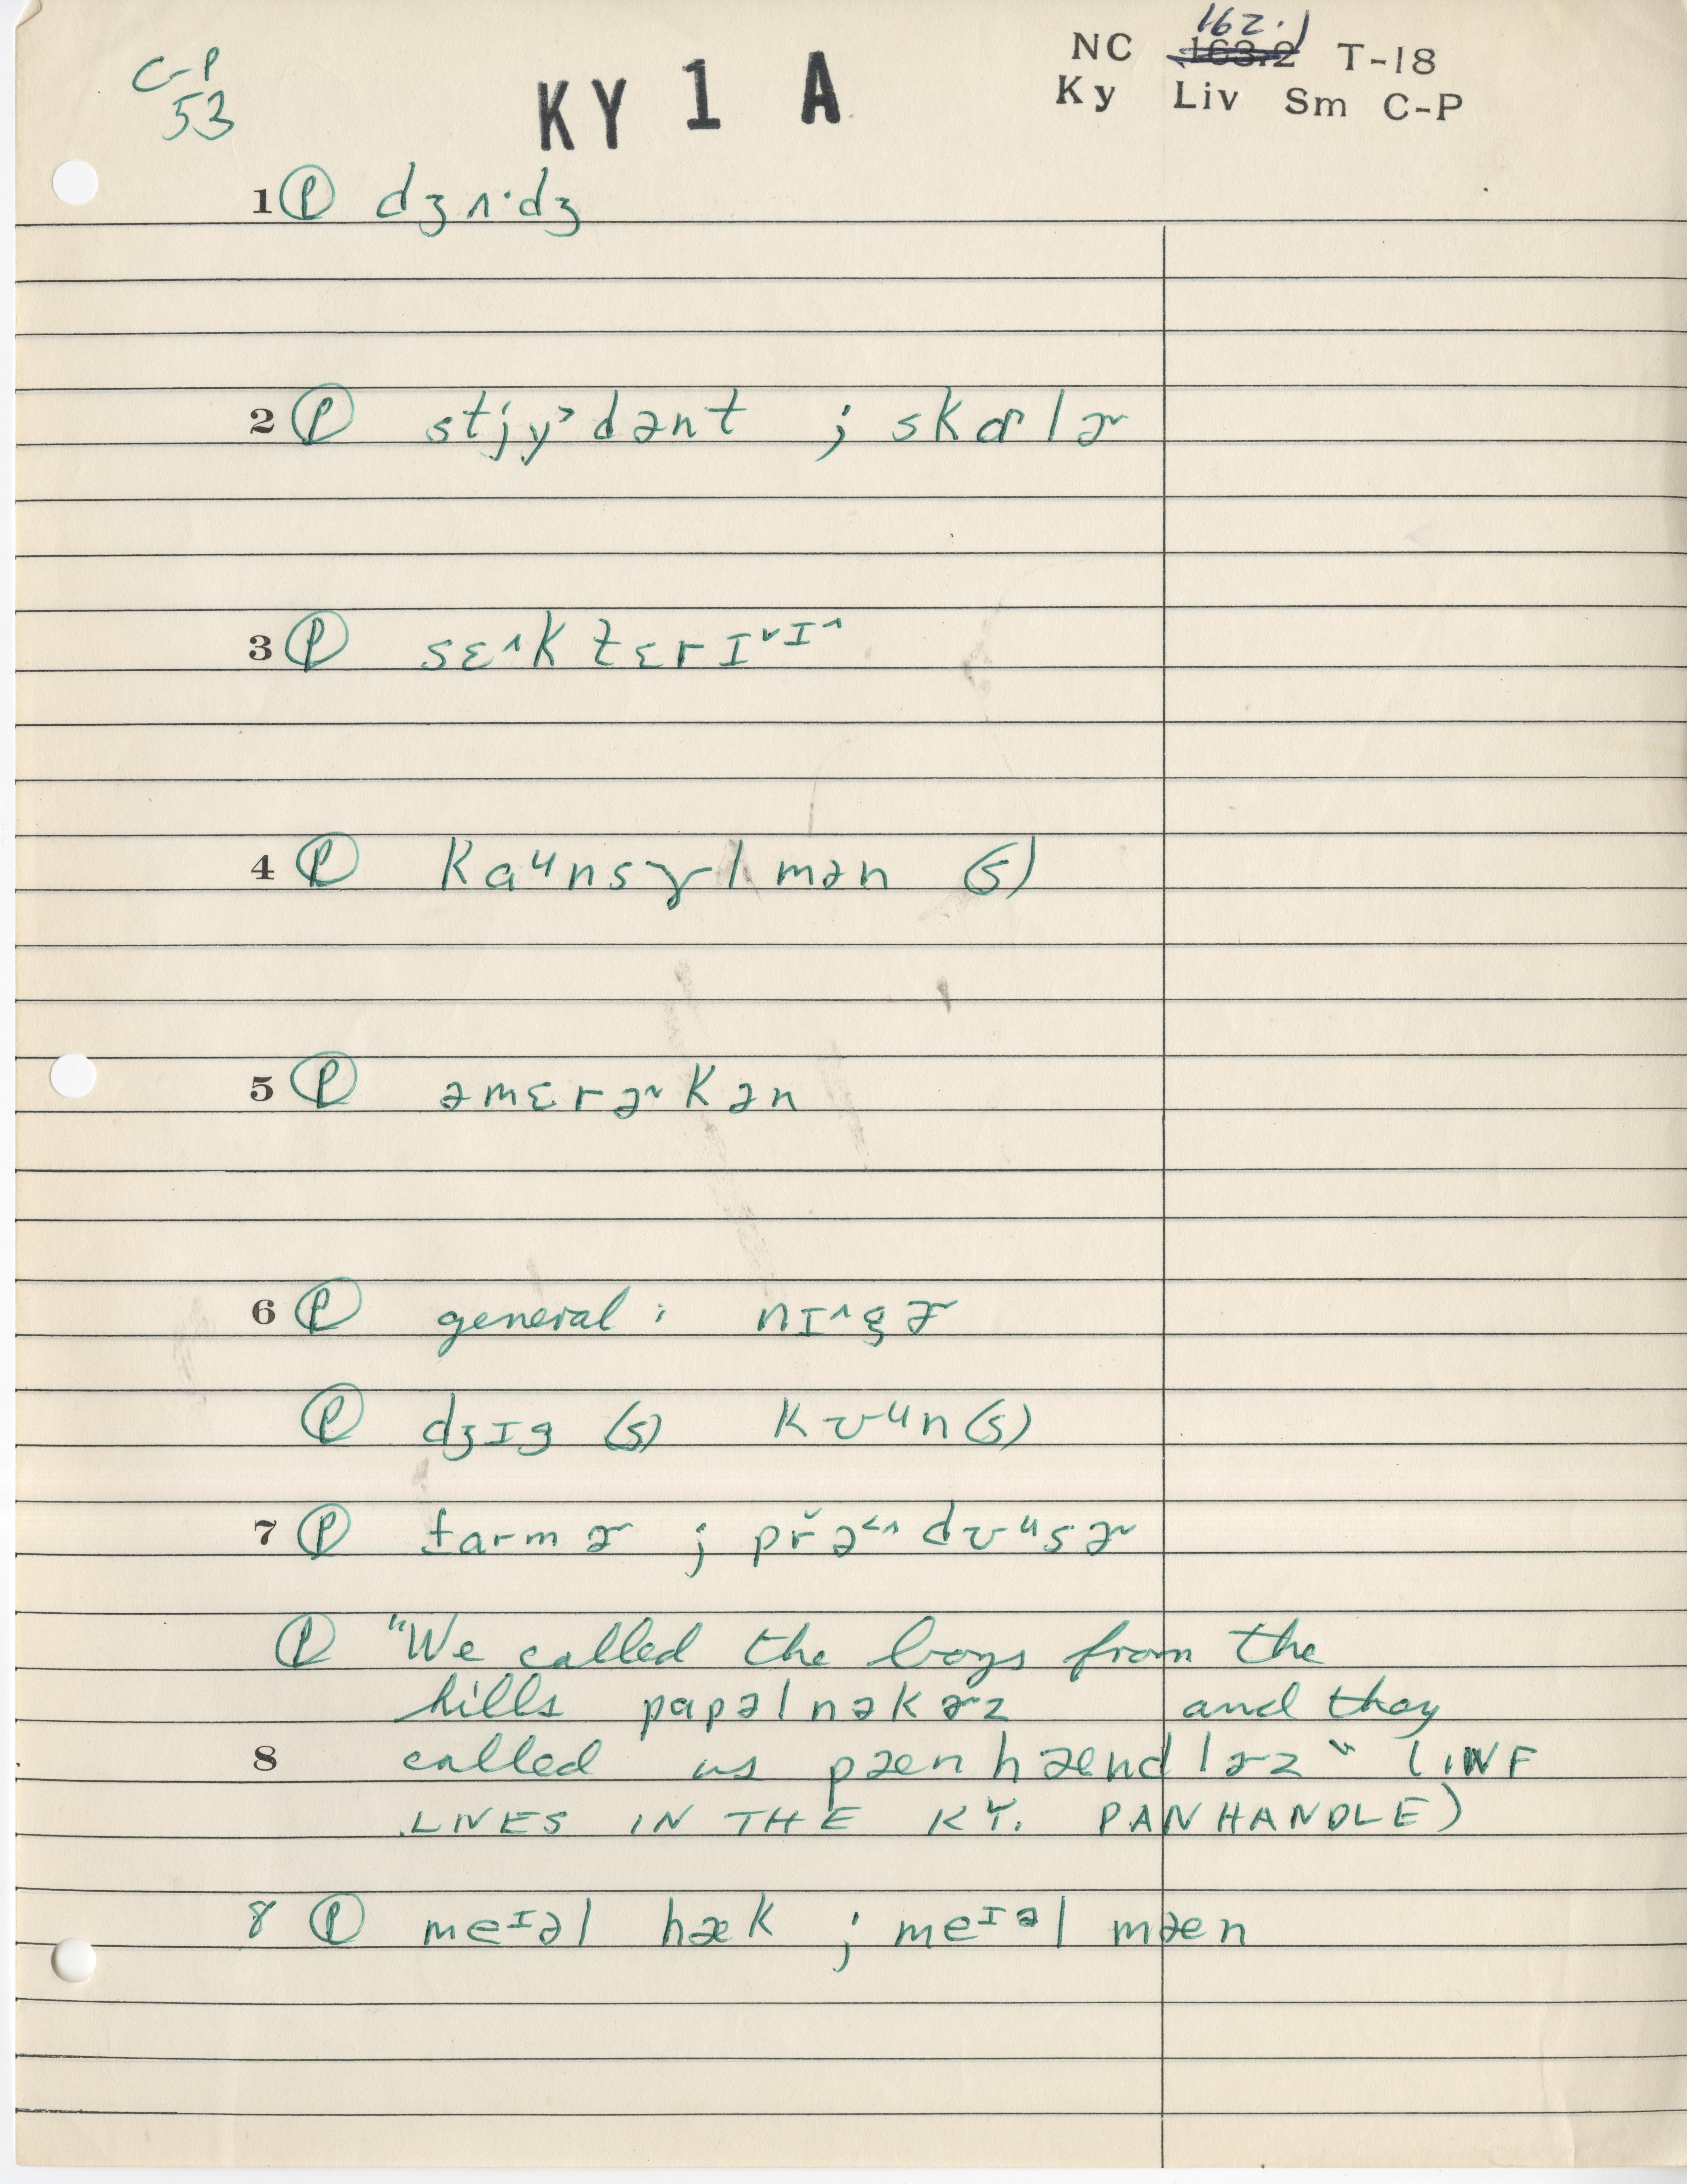 C-P
53
KY 1 A
162.1
NC 163.2 T-18
Ky Liv Sm C-P
1 Ⓟ dʒʌ·dʒ
2 Ⓟ stjy˃dənt ; skɑlɚ
3 Ⓟ sɛ˄ktɛrɪ˅ɪ˄
4 Ⓟ kaᵘnsɤlmən (s)
5 Ⓟ əmɛrɚkən
6 Ⓟ general : nɪ˄gɚ
Ⓟ dʒɪg (s) kʊᵘn(s)
7 Ⓟ farmɚ ; pr̆ə˂˄dʊᵘsɚ
Ⓟ "We called the boys from the
hills papəlnəkɚz and they
8 called us pænhændlɚz" (INF
LIVES IN THE KY. PANHANDLE)
8 Ⓟ meᶦəl hæk ; meᶦᵊl mæn